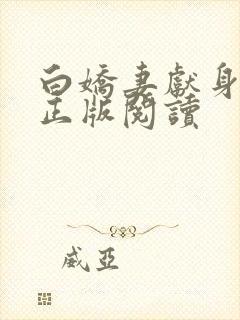 白嬌妻獻身
正版閱讀
威亞